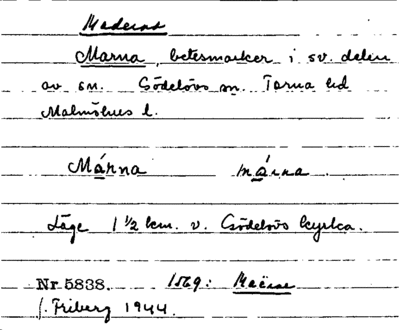 Marna, betesmarker i sv. delen
av sn. Gödelövs sn. Torna hd
Malmöhus l.
Márna márna.
Läge 1 1/2 km. v. Gödelövs kyrka.
Nr. 5838. 1569:
J. Friberg 1944.